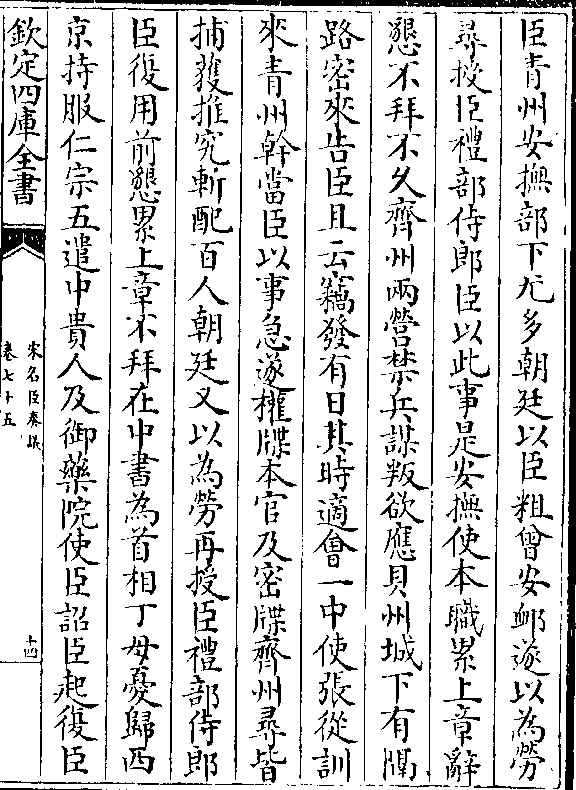 臣青州安撫部下尤多朝廷以臣粗曾安䘏遂以為勞
尋授臣禮部侍郎臣以此事是安撫使本職累上章辭
懇不拜不久齊州兩營禁兵謀叛欲應貝州城下有關
路密來告臣且云竊發有日其時適會一中使張從訓
來青州幹當臣以事急遂權牒本官及密牒齊州尋皆
捕獲推究斬配百人朝廷又以為勞再授臣禮部侍郎
臣復用前懇累上章不拜在中書為首相丁母憂歸西
京持服仁宗五遣中貴人及御藥院使臣詔臣起復臣
欽定四庫全書
宋名臣奏議
卷七十五
十四